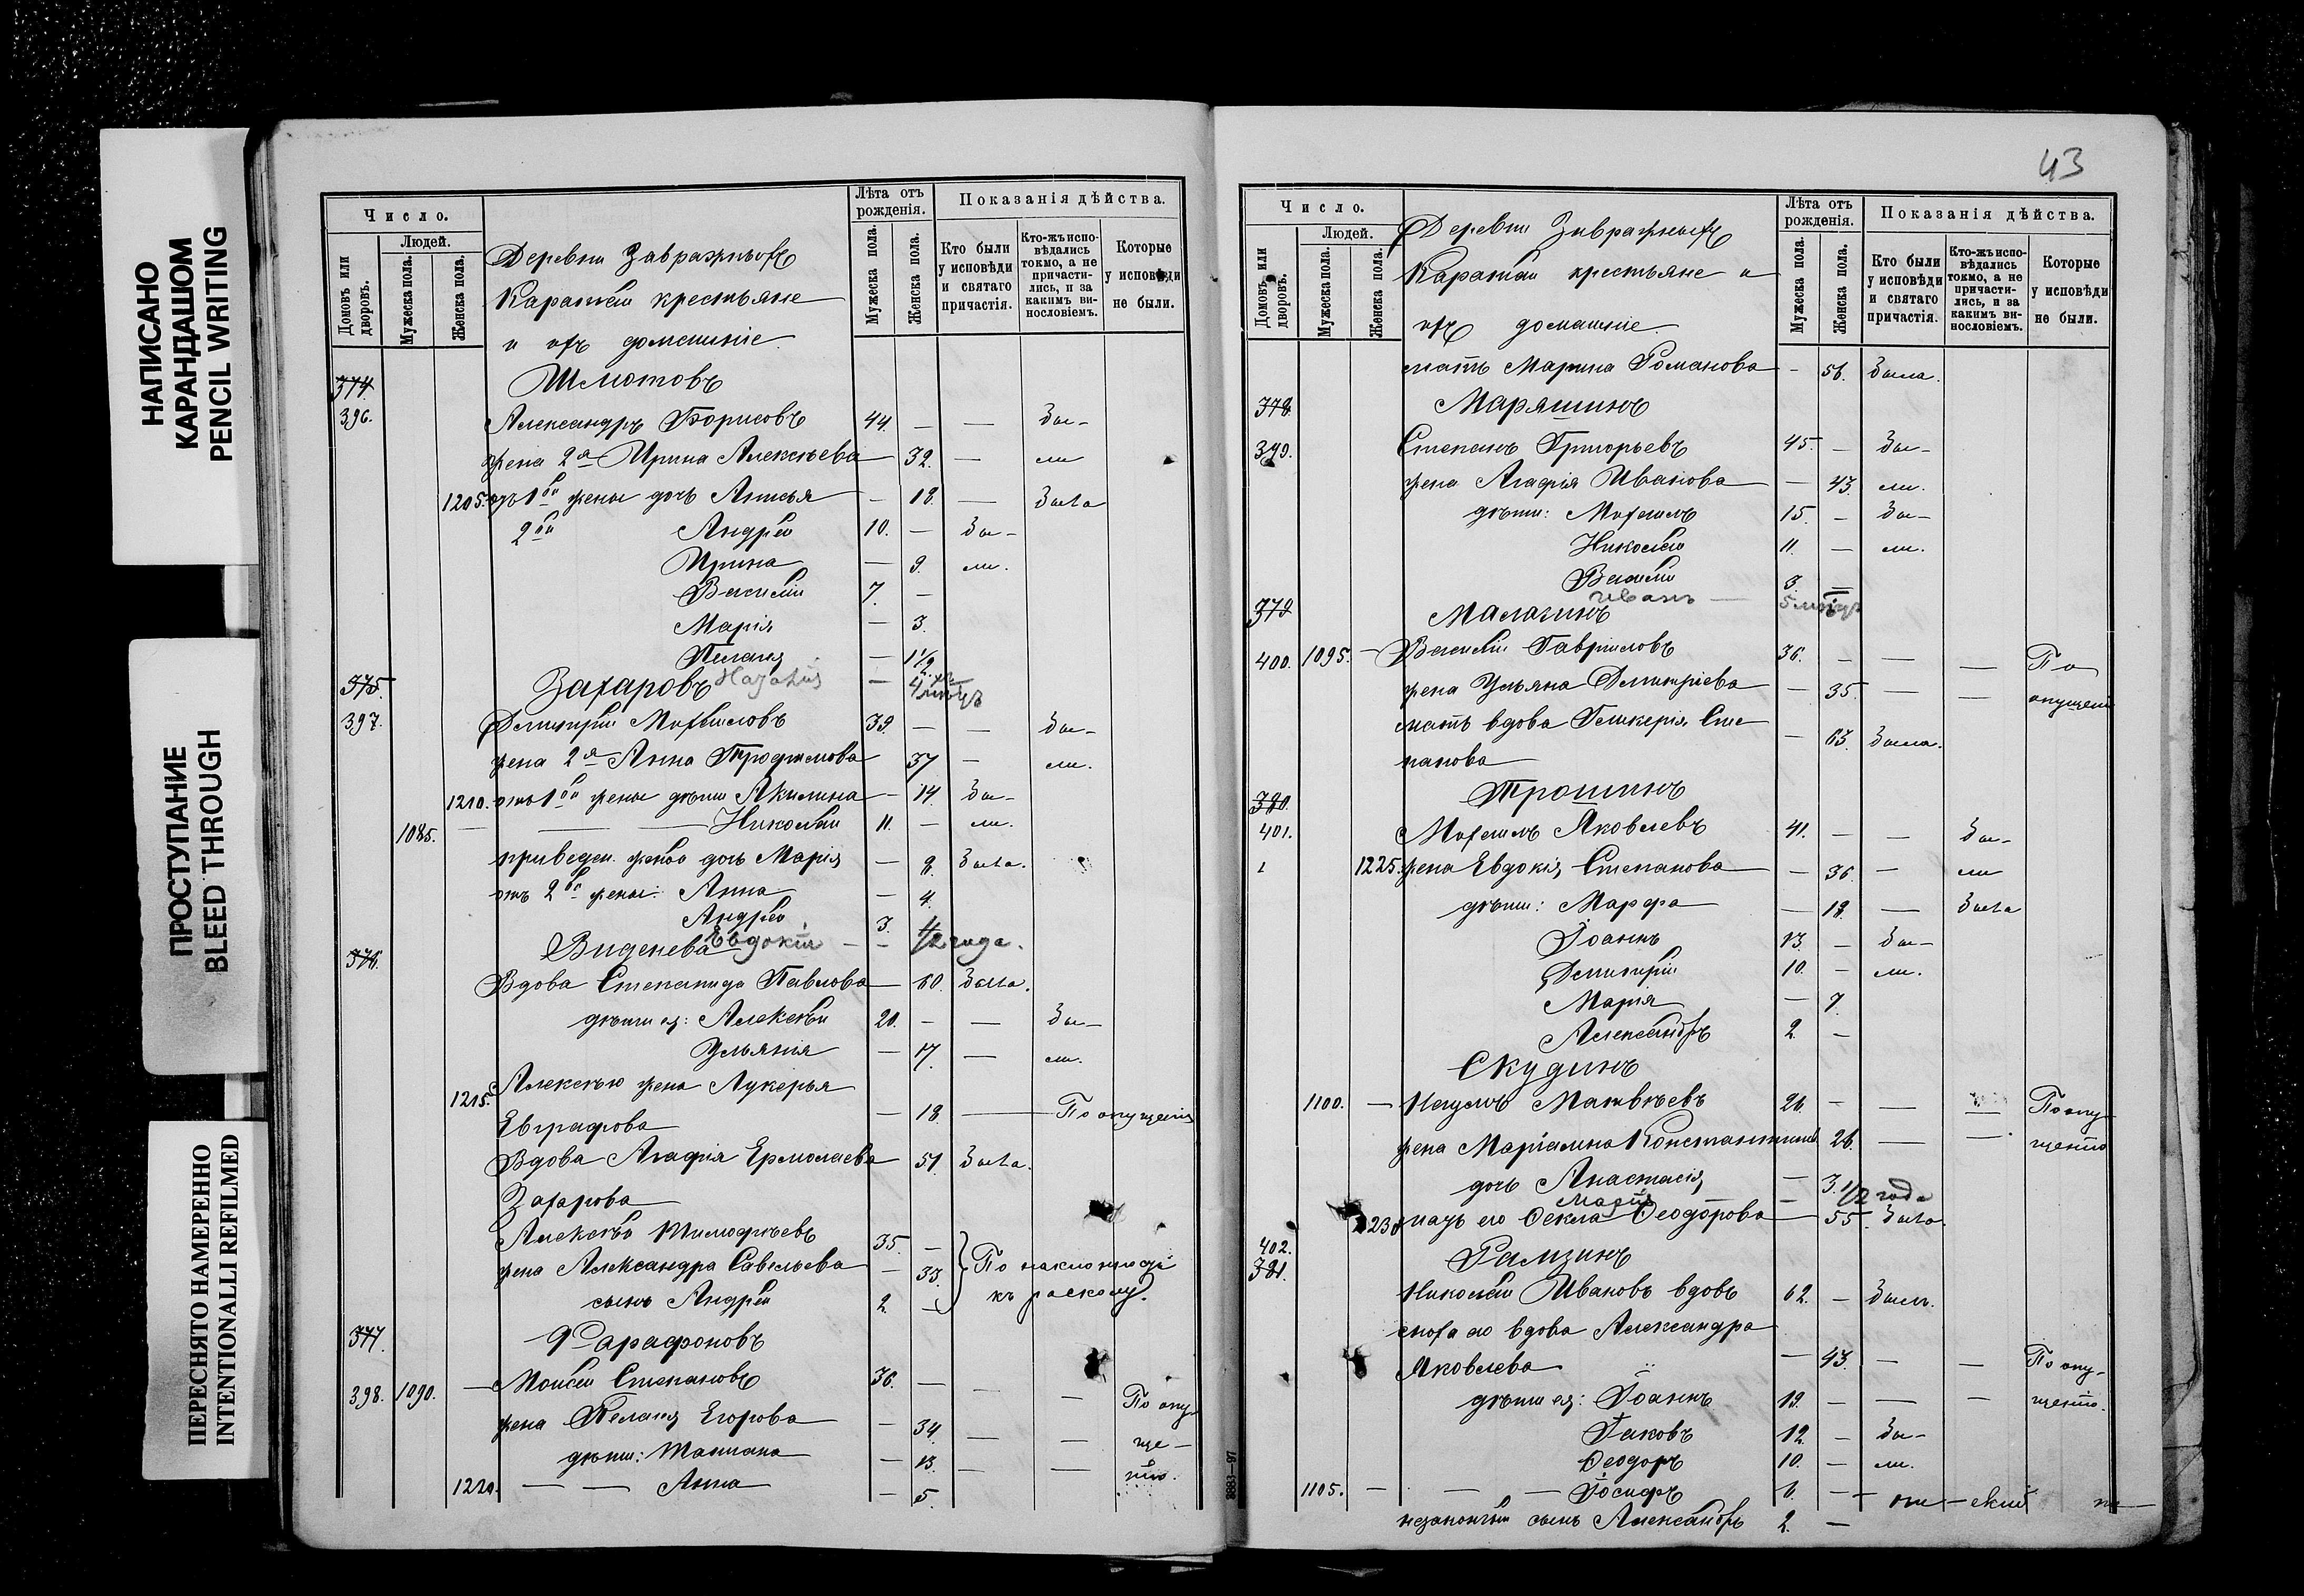 НАПИСАНО
КАРАНДАШОМ
PENCIL WRITING
ПРОСТУПАНИЕ
BLEED THROUGH
ПЕРЕСНЯТО НАМЕРЕННО
INTENTIONALLI REFILMED
Число.
Лѣта отъ рожденія.
Показанія дѣйства.
Домовъ или дворовъ.
Людей.
Мужеска пола.
Женска пола.
Мужеска пола.
Женска пола.
Кто были у исповѣди и святаго причастія.
Кто-жъ исповѣдались токмо, а не причастились, и за какимъ винословіемъ.
Которые у исповѣди не были.
Деревни Завражныхъ
Каратаи крестьяне
и ихъ домашніе
374. Шмотовъ
396. Александръ Борисовъ 44. — — бы-
жена 2я Ирина Алексѣева — 32. — ли
1205. отъ 1ой жены дочь Анисья — 18. — была
2ой Андрей 10. — бы-
Ирина — 9. ли.
Василій 7. —
Марія — 3.
Пелагія — 1 1/2
375. Захаровъ Наталія — 4
397. Дмитрій Михайловъ 39. — — бы-
жена 2я Анна Трофимова 37 — ли.
1210. отъ 1ой жены дѣти Акилина — 14. бы-
1085. — — — Николай 11. — ли.
приведен. женою дочь Марія — 8. была.
отъ 2ой жены: Анна — 4.
Андрей 3.
376. Виденева Евдокія — — 1/2 года.
Вдова Степанида Павлова — 60. была.
дѣти ея: Алексѣй 20. — — бы-
Ульянія — 17. — ли.
1215. Алексѣю жена Лукерья
Евграфова — 18 — По опущенію
Вдова Агафія Ермолаева 51. была.
Захарова
Алексѣй Тимофѣевъ 35. —
жена Александра Савельева — 33. По наклонности
сынъ Андрей 2. — къ расколу.
377. Фарафоновъ
398. 1090. — Моисей Степановъ 36. — — — По опу-
жена Пелагія Егорова — 34. — — ще-
дѣти: Татіана — 13. — — нію.
1220. — — Анна — 5.
43
Число.
Лѣта отъ рожденія.
Показанія дѣйства.
Домовъ или дворовъ.
Людей.
Мужеска пола.
Женска пола.
Мужеска пола.
Женска пола.
Кто были у исповѣди и святаго причастія.
Кто-жъ исповѣдались токмо, а не причастились, и за какимъ винословіемъ.
Которые у исповѣди не были.
Деревни Завражныхъ
Каратаи крестьяне и
ихъ домашніе
мать Марина Романова — 56. была.
378. Маряшинъ
399. Степанъ Григорьевъ 45. — бы-
жена Агафія Иванова — 43. ли.
дѣти: Михаилъ 15. — бы-
Николай 11. — ли.
Василій 3. —
Иванъ — 5
379 Малагинъ
400. 1095. — Василій Гавриловъ 36. — — — По
жена Ульяна Дмитріева — 35 — — опущенію
мать вдова Гликерія Сте
панова — 63. была.
380. Трошинъ
401. Михаилъ Яковлевъ 41. — — бы-
1225. жена Евдокія Степанова — 36. — ли
дѣти: Марфа — 18. — была
Іоаннъ 13. — бы-
Дмитрій 10. — ли.
Марія — 7.
Александръ 2. —
Скудинъ
1100. — Наумъ Матвѣевъ 26. — — — По опу-
жена Маріамна Константинова 26. — — щенію
дочь Анастасія — 3.
Марія — 1/2 года
1230 мать его Ѳекла Ѳеодорова — 55. была
402.
381. Рамзинъ
Николай Ивановъ вдовъ 62. — былъ.
сноха его вдова Александра
Яковлева — 43. — — По опу-
дѣти ея: Іоаннъ 19. — — — щенію.
Іаковъ 12. — бы-
Ѳеодоръ 10. — ли.
1105. — — — Іосифъ 6. —
незаконный сынъ Александръ 2. —
8883—97